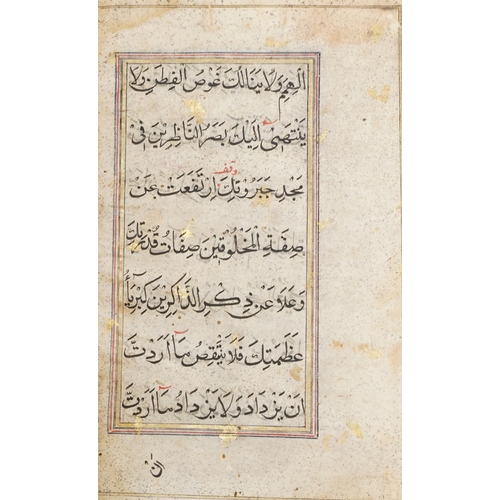 الهمم ولا ينالك غوص الفطن ولا
ينتهى اليك بصر الناظرين فى
وقف
مجد جبروتك ارتفعت عن
صفة المخلوقين صفات قدرتك
وعلا عن ذكر الذاكرين كبرياء
عظمتك فلا ينقص ما اردت
ان يزداد ولا يزداد ما اردت
ان